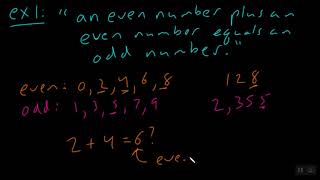 ex1: "an even number plus an
even number equals an
odd number."
even: 0, 2, 4, 6, 8 128
odd: 1, 3, 5, 7, 9 2,355
2 + 4 = 6?
eve